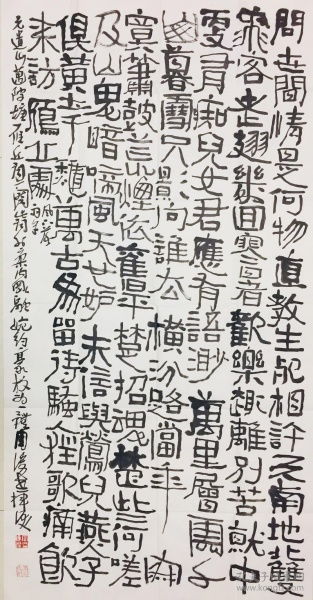 問世間情是何物直教生死相許天南地北雙
飛客老翅幾回寒暑歡樂趣離別苦就中
更有痴兒女君應有語渺萬里層雲千
山暮雪只景向誰去橫汾路當年寂
寞簫鼓荒煙依舊平楚招魂楚些何嗟
及山鬼暗啼風天也妒未信與鶯兒燕子
俱黃土千秋萬古爲留待騷人狂歌痛飲
來訪鴈丘處
元遺山邁陂塘雁丘詞
婉約豪放